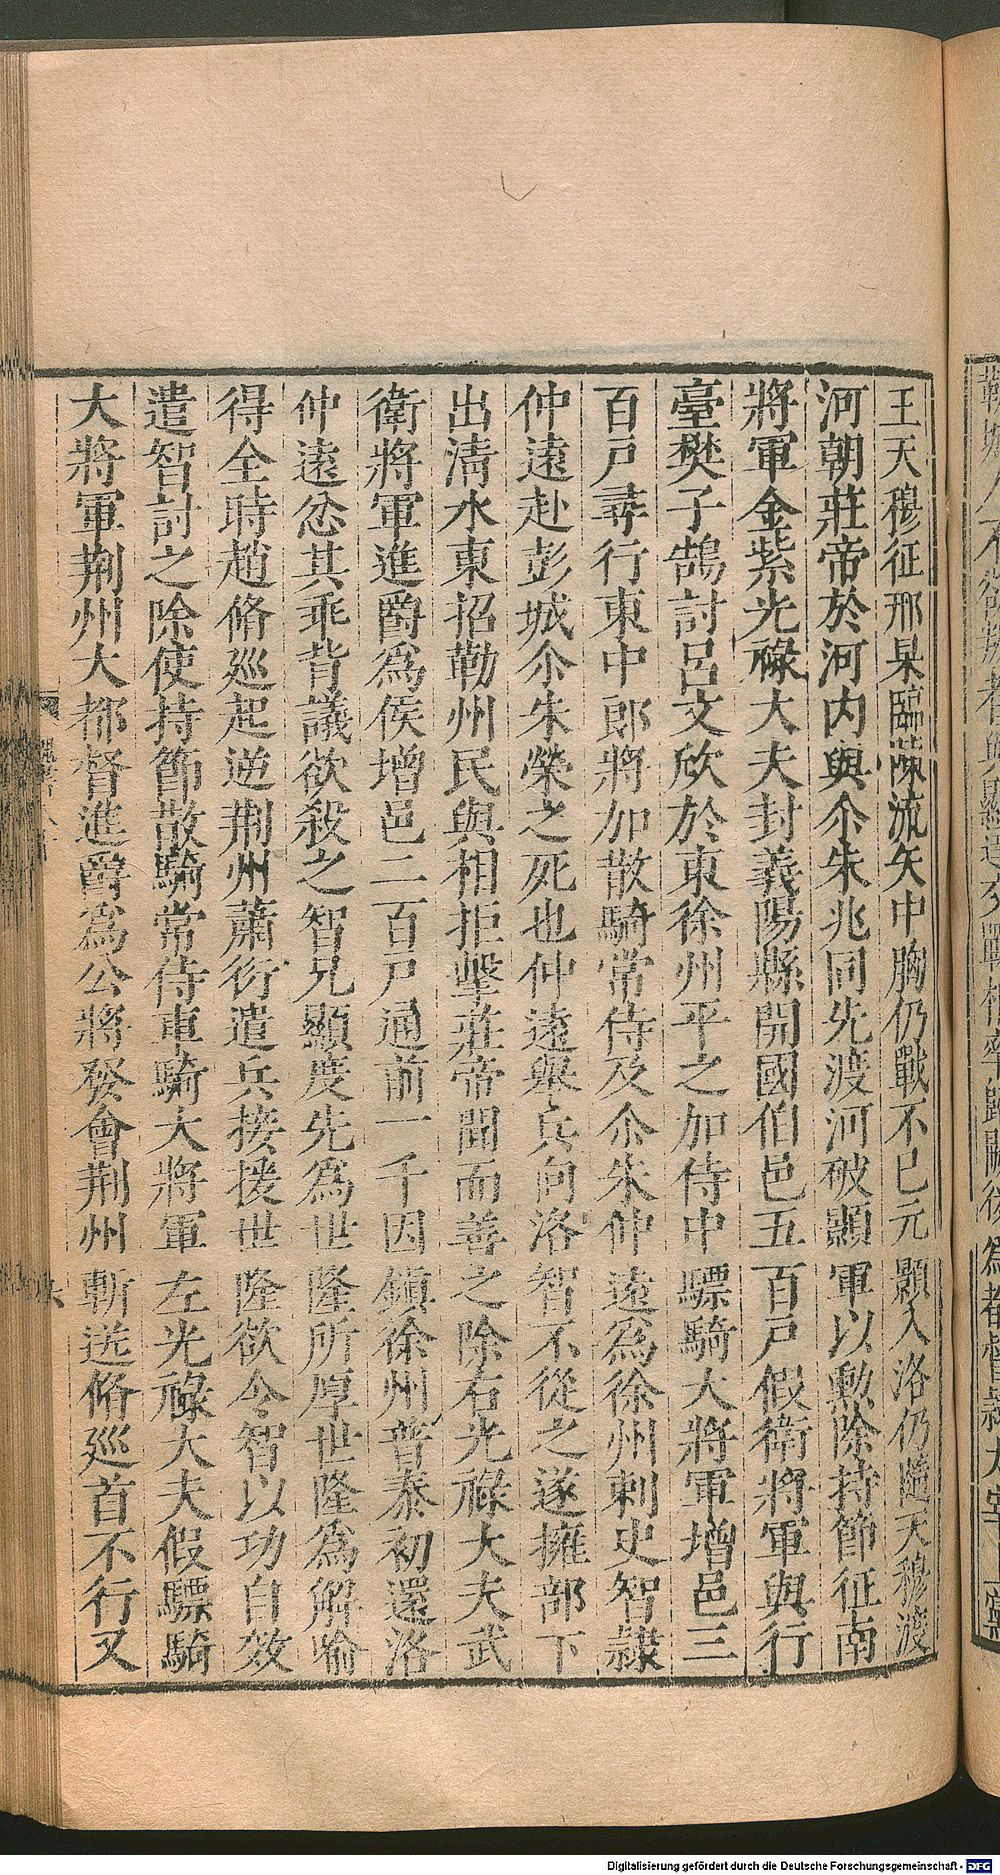 王天穆征邢杲臨陳流矢中胸仍戰不已元顥入洛仍隨天穆渡
河朝莊帝於河內與尒朱兆同先渡河破顥軍以勳除持節征南
將軍金紫光祿大夫封義陽縣開國伯邑五百戶假衛將軍與行
臺樊子鵠討呂文欣於東徐州平之加侍中驃騎大將軍增邑三
百戶尋行東中郎將加散騎常侍及尒朱仲遠為徐州刺史智隸
仲遠赴彭城尒朱榮之死也仲遠舉兵向洛智不從之遂擁部下
出清水東招勒州民與相拒擊莊帝聞而善之除右光祿大夫武
衛將軍進爵為侯增邑二百戶通前一千因鎮徐州普泰初還洛
仲遠忿其乖背議欲殺之智兄顯度先為世隆所厚世隆為解喻
得全時趙脩延起逆荆州蕭衍遣兵接援世隆欲令智以功自效
遣智討之除使持節散騎常侍車騎大將軍左光祿大夫假驃騎
大將軍荆州大都督進爵為公將發會荆州斬送脩延首不行又
Digitalisierung gefördert durch die Deutsche Forschungsgemeinschaft - DFG